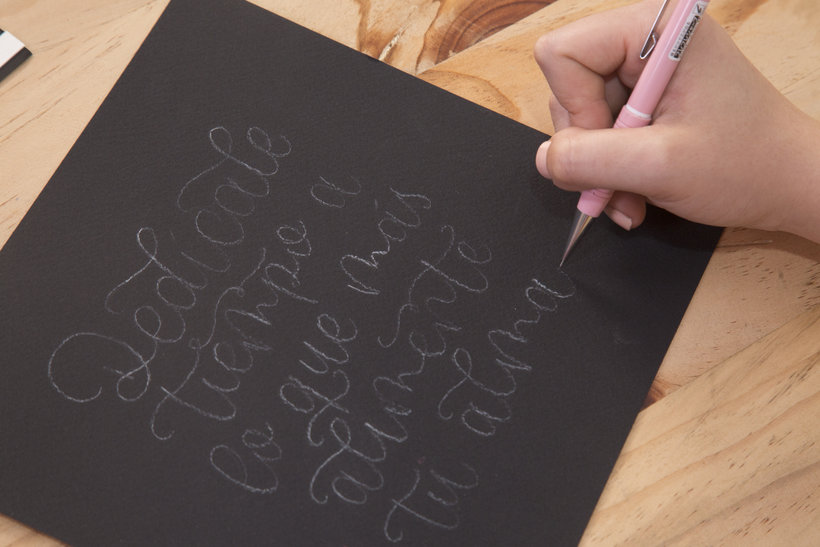 Dedicale
tiempo a
lo que más
alimente
tu alma